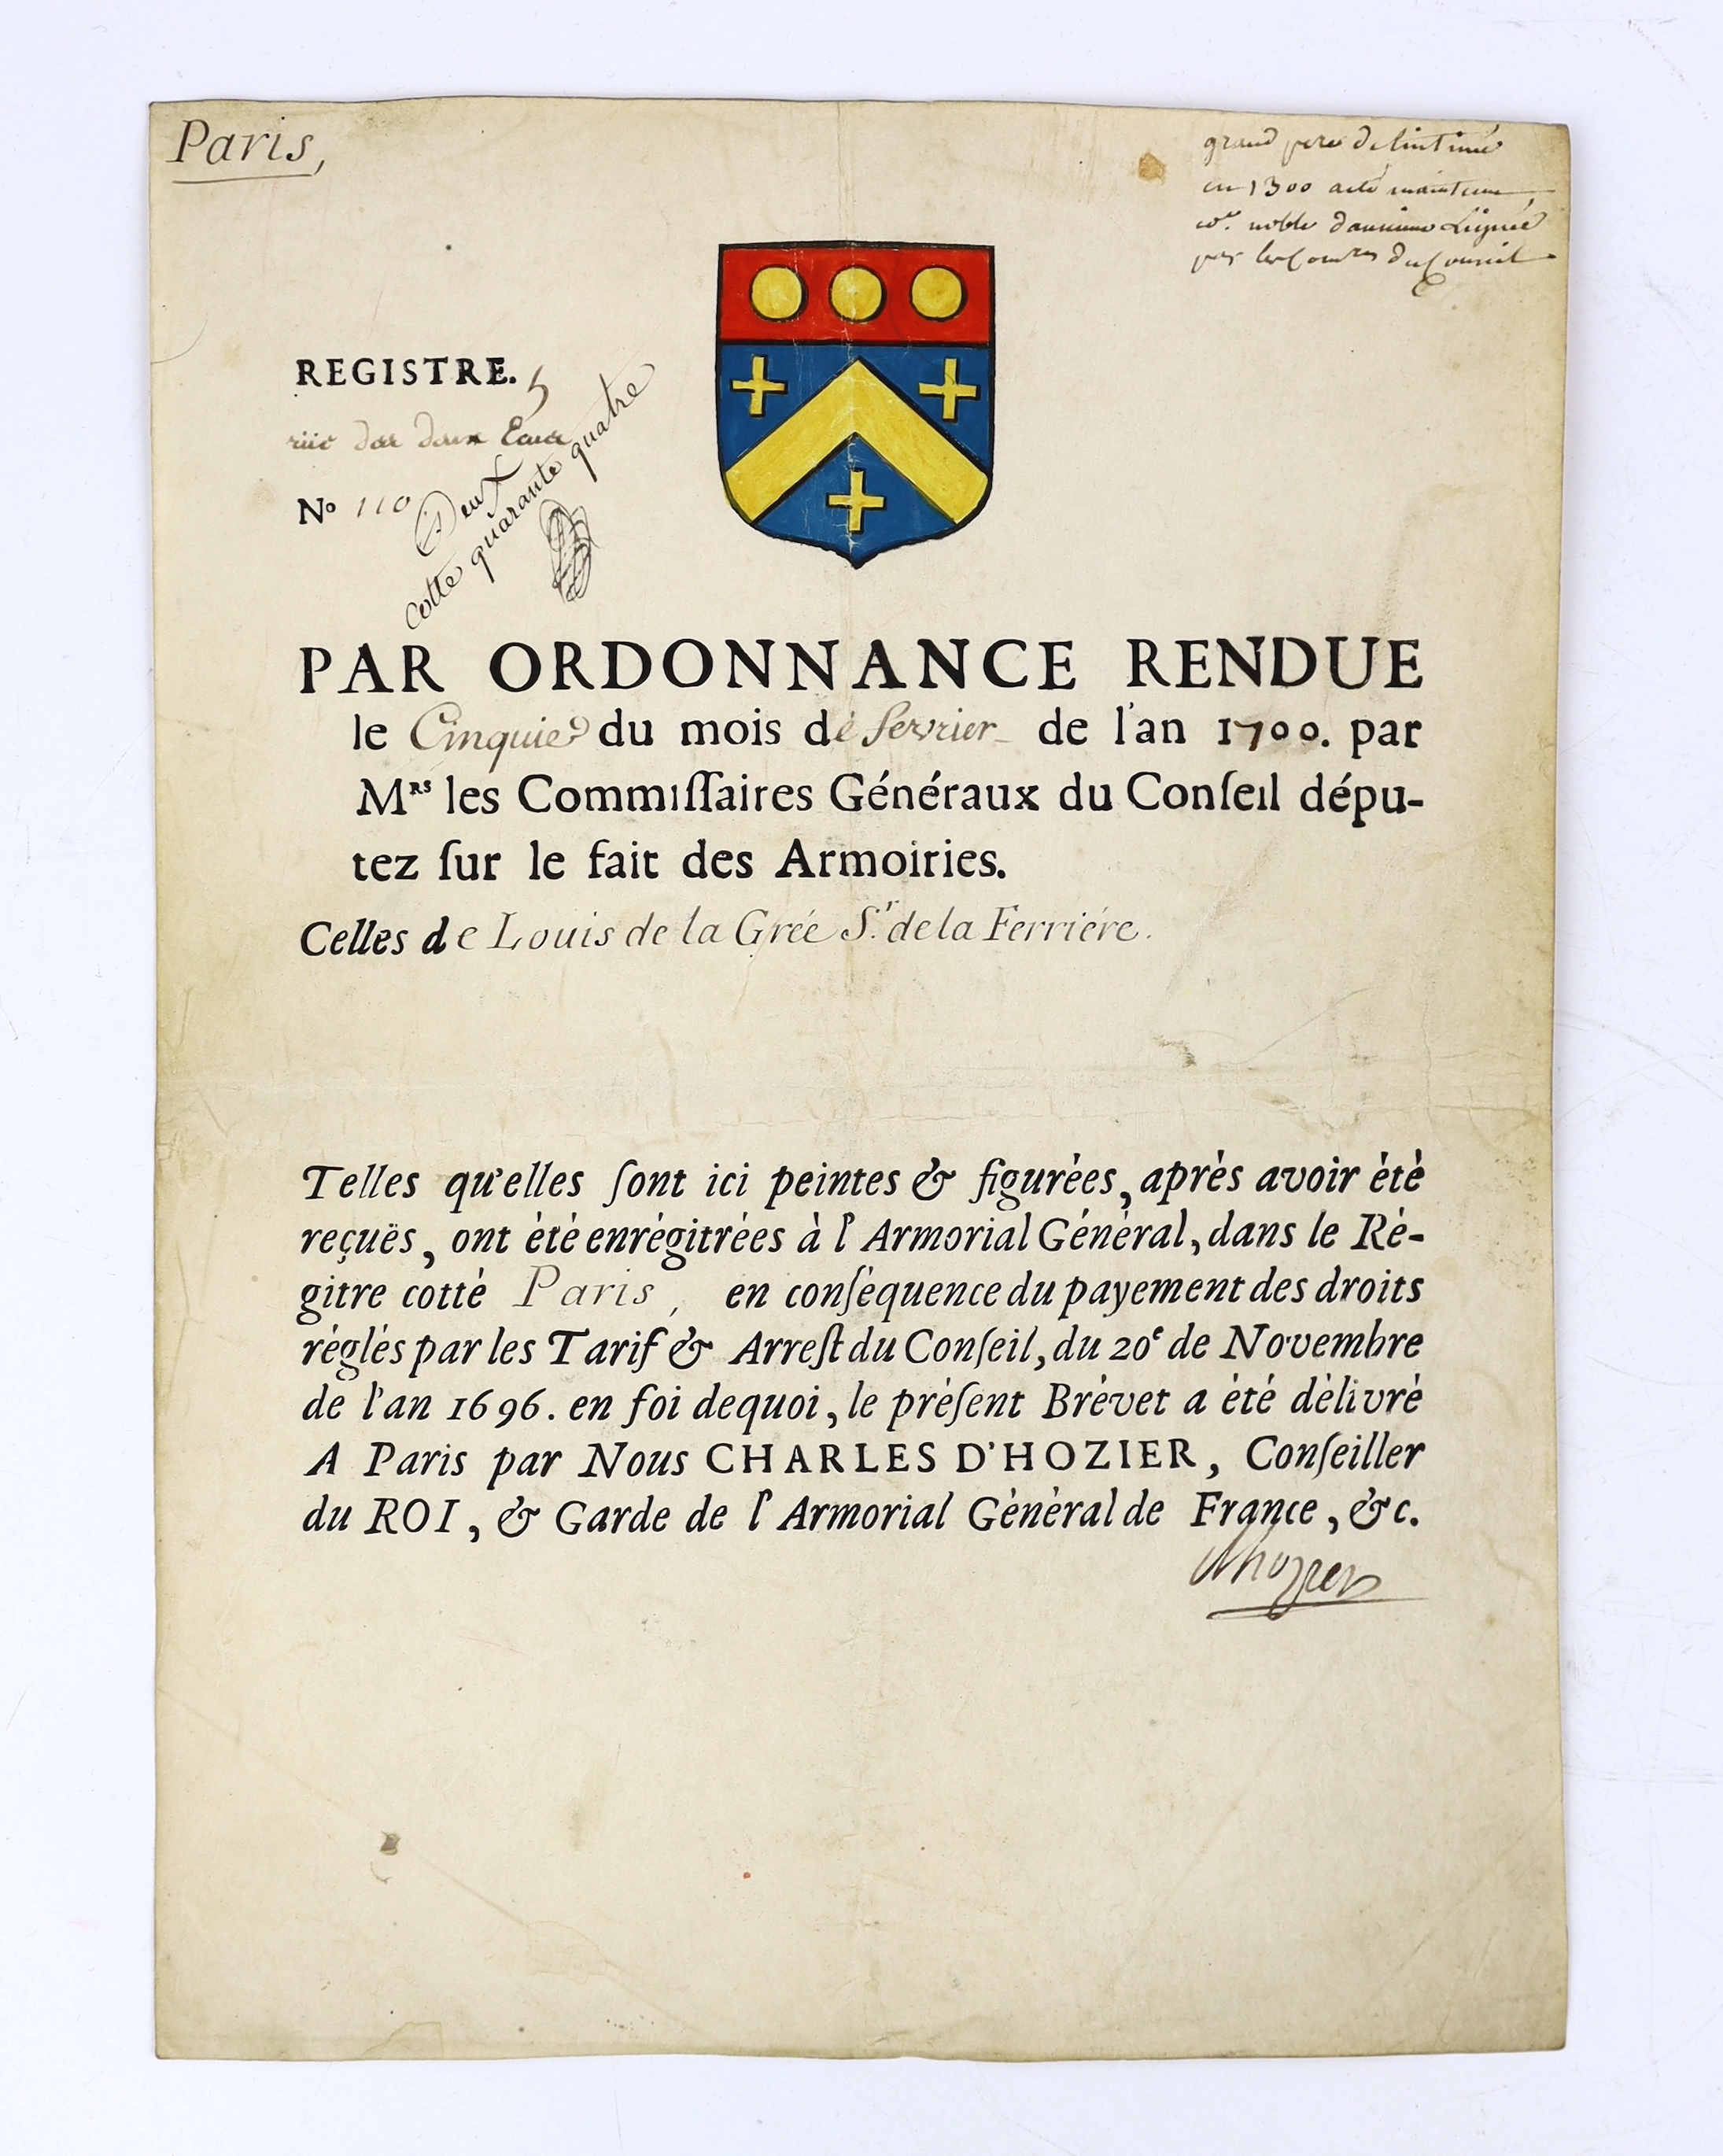 Paris,
grand pere de lintimé
en 1300 acté maintenu
noble danciene Lignée
par les du Conseil
REGISTRE. 5
rüe des deux Ecus
No 110
Deux
cotte quarante quatre
PAR ORDONNANCE RENDUE
le Cinquie? du mois de fevrier de l'an 1700. par
Mrs les Commiſſaires Généraux du Conſeil dépu-
tez ſur le fait des Armoiries.
Celles de Louis de la Grée Sr. de la Ferriére.
Telles qu'elles ſont ici peintes & figurèes, après avoir ètè
reçuës, ont ètè enrègitrèes à l'Armorial Gènèral, dans le Rè-
gitre cottè Paris, en conſèquence du payement des droits
règlès par les Tarif & Arreſt du Conſeil, du 20e de Novembre
de l'an 1696. en foi dequoi, le prèſent Brèvet a ètè dèlivrè
A Paris par Nous CHARLES D'HOZIER, Conſeiller
du ROI, & Garde de l'Armorial Gènèral de France, &c.
dhozier